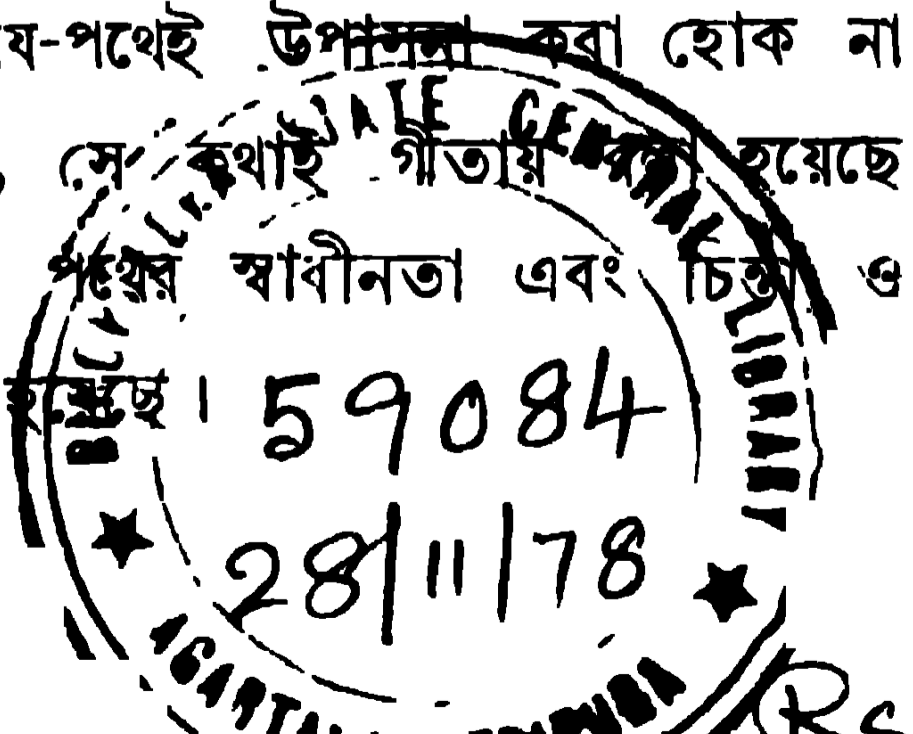 য-পথেই উপাসনা করা হোক না
সে কথাই গীতায় বলা হয়েছে
পথের স্বাধীনতা এবং চিন্তা ও
হয়েছে।
STATE CENTRAL LIBRARY
59084
28/11/78
AGARTALA TRIPURA
Rs